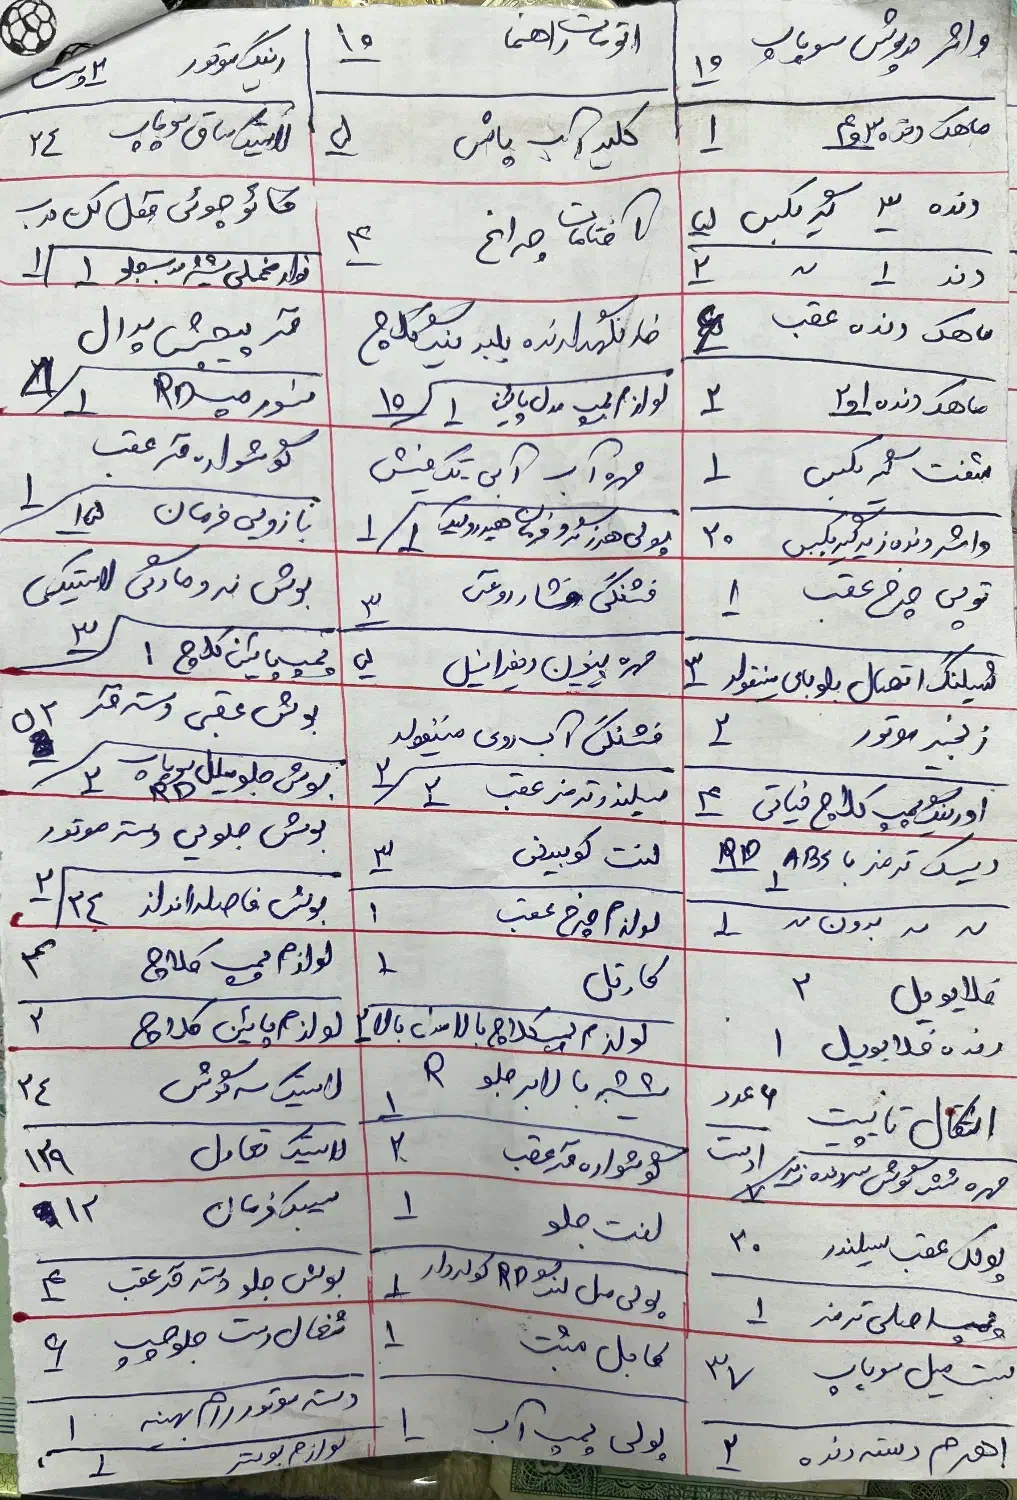 واشر درپوش سوپاپ ۱۰
ماهک دنده ۳و۴ ۱
دنده ۳ گیربکس
دند ۱ ۲
ماهک دنده عقب
ماهک دنده ۱و۲ ۲
شفت گیربکس ۱
واشر دنده زیر گیربکس ۲۰
توپی چرخ عقب ۱
شیلنگ اتصال بلوبای منیفولد ۳
زنجیر موتور ۲
اورینگ پمپ کلاچ فیاتی ۴
دیسک ترمز با ABS RD ۱
〃 〃 بدون 〃 ۱
فلایویل ۲
دنده فلایویل ۱
انتقال تا پیت ۶ عدد
مهره شش گوش سردنده
پولک عقب سیلندر ۲۰
پمپ اصلی ترمز ۱
بست میل سوپاپ ۳۷
اهرم دسته دنده ۲
اتومات راهنما ۱۰
کلید آب پاش
آفتامات چراغ ۴
خار نگهدارنده بلبرینگ کلاچ
لوازم پمپ مدل پائین ۱ / ۱۵
مهره آب آبی تک فیش
پولی هرزگرد فرمان هیدرولیک ۱ / ۱
فشنگی فشار روغن ۳
مهره پینیون دیفرانسیل
فشنگی آب روی منیفولد ۲
سیلندر ترمز عقب ۲
لنت کوبیدنی ۳
لوازم چرخ عقب ۱
کارتل ۱
لوازم پمپ کلاچ بالا مدل بالا ۲
شیشه بالابر جلو R ۱
گوشواره فنر عقب ۲
لنت جلو ۱
پولی میل لنگ RD کولردار ۱
کابل مثبت ۱
پولی پمپ آب ۱
رینگ موتور ۲ دست
لاستیک ساق سوپاپ ۲۴
کائوچوئی قفل کن درب
نوار مخملی شیشه درب جلو ۱ / ۱
فنر پیچش پدال
منور پمپ RD ۱
گوشواره فنر عقب ۱
بازویی فرمان
بوش نر و مادگی لاستیکی ۳
پمپ پائین کلاچ ۱
بوش عقبی دسته فنر ۵۲
بوش جلو میل سوپاپ RD ۲
بوش جلویی دسته موتور ۲
بوش فاصله انداز ۳۴
لوازم پمپ کلاچ ۳
لوازم پائین کلاچ ۲
لاستیک سه گوش ۲۴
لاستیک تعادل ۱۲۹
سیبک فرمان ۱۲
بوش جلو دسته فنر عقب ۴
شغال دست جلو چپ ۶
دسته موتور رام بهینه ۱
لوازم بوستر ۱